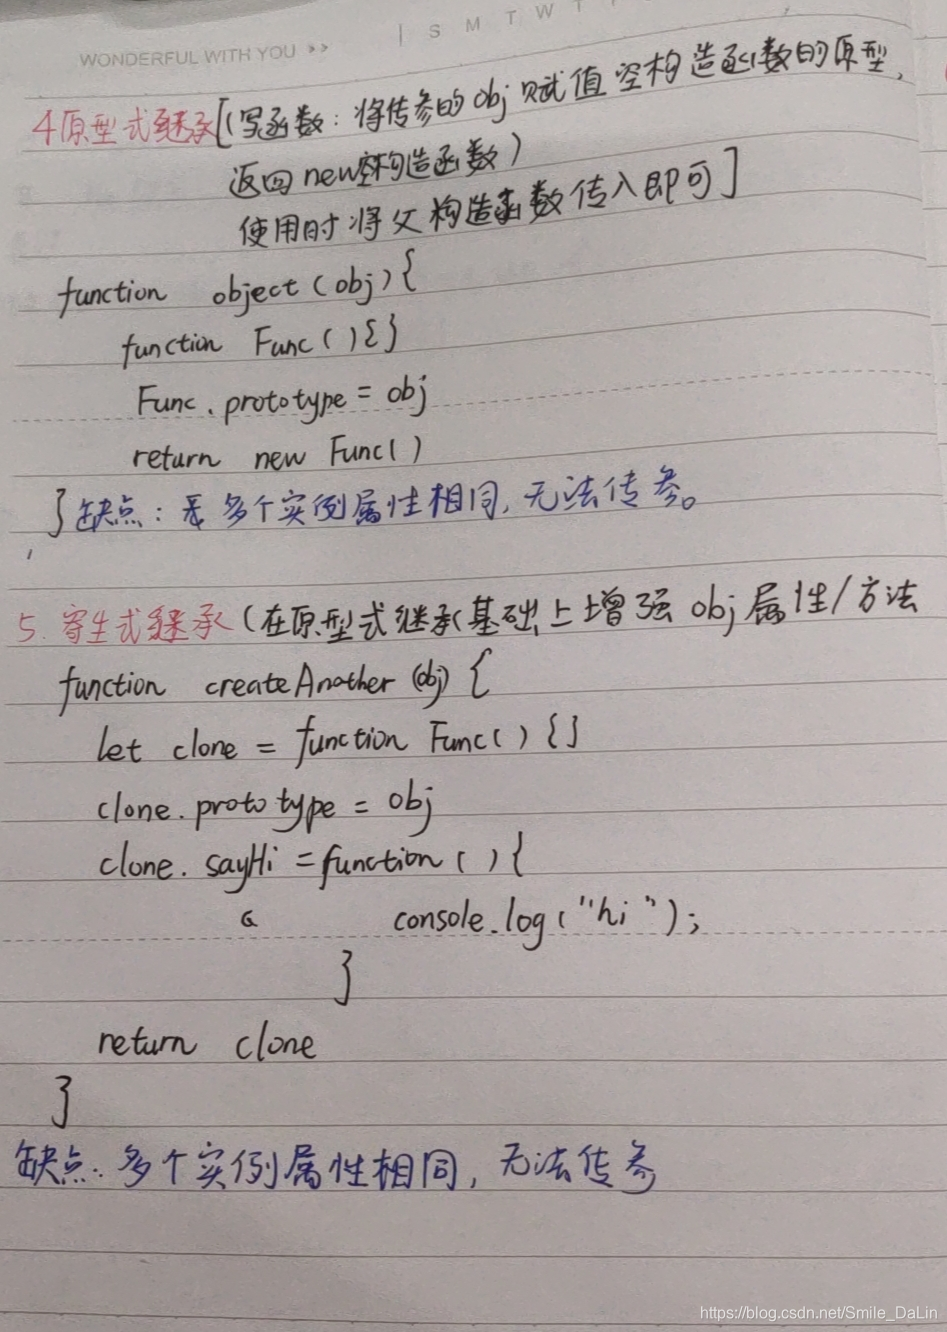 WONDERFUL WITH YOU >> | S M T W T
4原型式继承[(写函数：将传参的obj赋值空构造函数的原型，
返回new空构造函数）
使用时将父构造函数传入即可]
function object(obj){
function Func(){}
Func.prototype = obj
return new Func()
}缺点：多个实例属性相同，无法传参。
5.寄生式继承(在原型式继承基础上增强obj属性/方法
function createAnother(obj){
let clone = function Func(){}
clone.prototype = obj
clone.sayHi = function(){
console.log("hi");
}
return clone
}
缺点：多个实例属性相同，无法传参
https://blog.csdn.net/Smile_DaLin